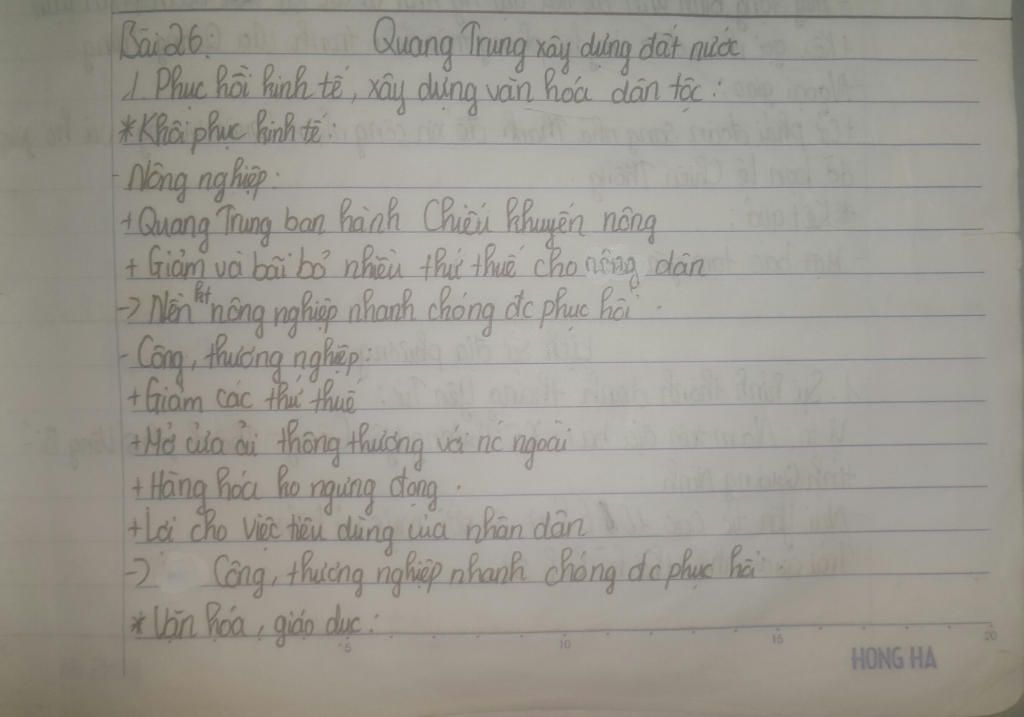 Bài 26: Quang Trung xây dựng đất nước
1. Phục hồi kinh tế, xây dựng văn hóa dân tộc:
*Khôi phục kinh tế:
- Nông nghiệp:
+ Quang Trung ban hành Chiếu khuyến nông
+ Giảm và bãi bỏ nhiều thứ thuế cho nông dân
-> Nền kt nông nghiệp nhanh chóng đc phục hồi.
- Công, thương nghiệp:
+ Giảm các thứ thuế
+ Mở cửa ải thông thương với nc ngoài
+ Hàng hóa ko ngưng đọng.
+ Lợi cho việc tiêu dùng của nhân dân
-> Công, thương nghiệp nhanh chóng đc phục hồi.
* Văn hóa, giáo dục:
5 10 15 20
HONG HA